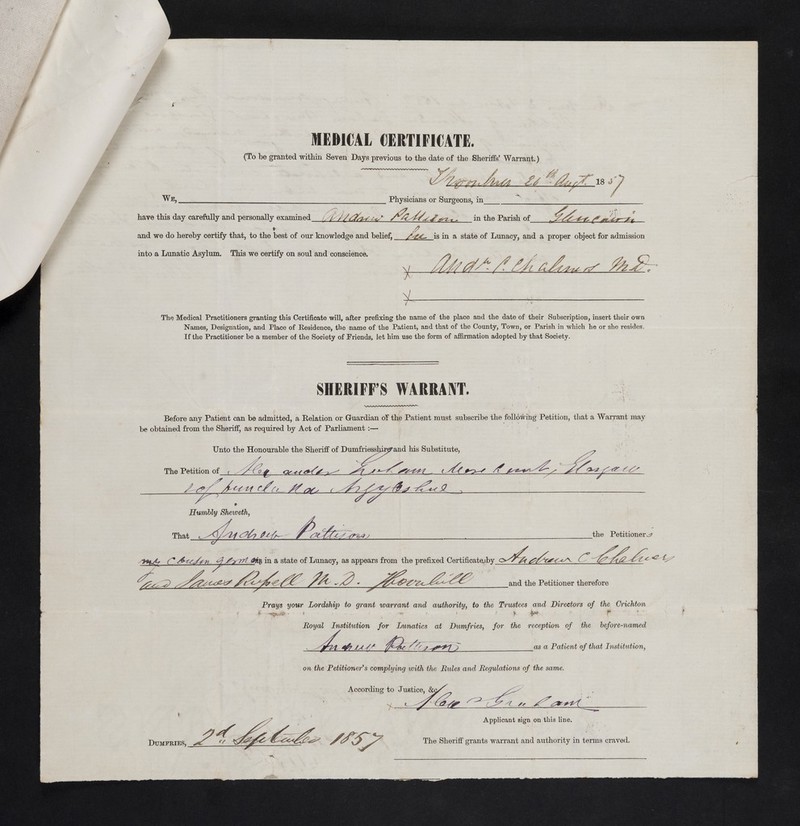 MEDICAL CERTIFICATE.
(To be granted within Seven Days previous to the date of the Sheriffs' Warrant.)
Thornhill 26th Augt. 1857
We, Physicians or Surgeons, in
have this day carefully and personally examined Andrew Pattison in the Parish of Glencairn
and we do hereby certify that, to the best of our knowledge and belief, he is in a state of Lunacy, and a proper object for admission
into a Lunatic Asylum. This we certify on soul and conscience.
x Andw. C. Chalmers M.D.
x
The Medical Practitioners granting this Certificate will, after prefixing the name of the place and the date of their Subscription, insert their own
Names, Designation, and Place of Residence, the name of the Patient, and that of the County, Town, or Parish in which he or she resides.
If the Practitioner be a member of the Society of Friends, let him use the form of affirmation adopted by that Society.
SHERIFF'S WARRANT.
Before any Patient can be admitted, a Relation or Guardian of the Patient must subscribe the following Petition, that a Warrant may
be obtained from the Sheriff, as required by Act of Parliament :—
Unto the Honourable the Sheriff of Dumfriesshire and his Substitute,
The Petition of Alexander Graham Glasgow
Argyleshire
Humbly Sheweth,
That Andrew Pattison the Petitioner's
Cousin german is in a state of Lunacy, as appears from the prefixed Certificate, by Andrew C Chalmers
and James Russell M.D. Thornhill and the Petitioner therefore
Prays your Lordship to grant warrant and authority, to the Trustees and Directors of the Crichton
Royal Institution for Lunatics at Dumfries, for the reception of the before-named
Andrew Pattison as a Patient of that Institution,
on the Petitioner's complying with the Rules and Regulations of the same.
According to Justice, &c.
x Alexr Graham
Applicant sign on this line.
Dumfries, 2d September 1857 The Sheriff grants warrant and authority in terms craved.